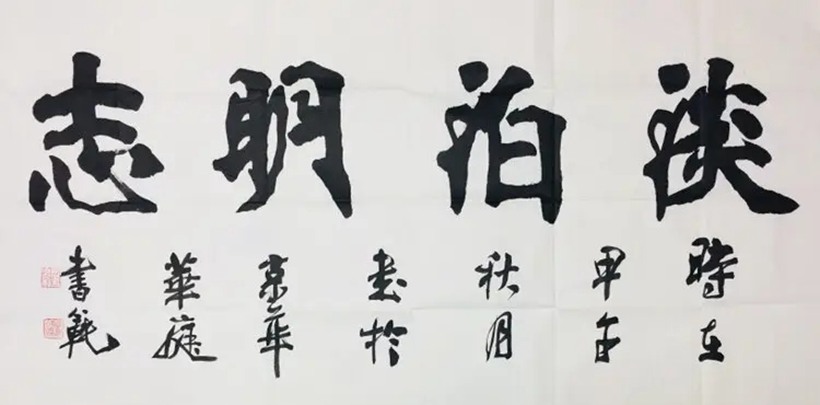 淡泊明志
時在
甲午
秋月
書於
京華
華庭
書範